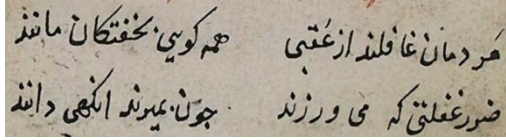 مردمان غافلند از عُقبی همه کویی بخفتکان مانند
ضرر غفلتی که می ورزند جون بمیرند انکهی دانند